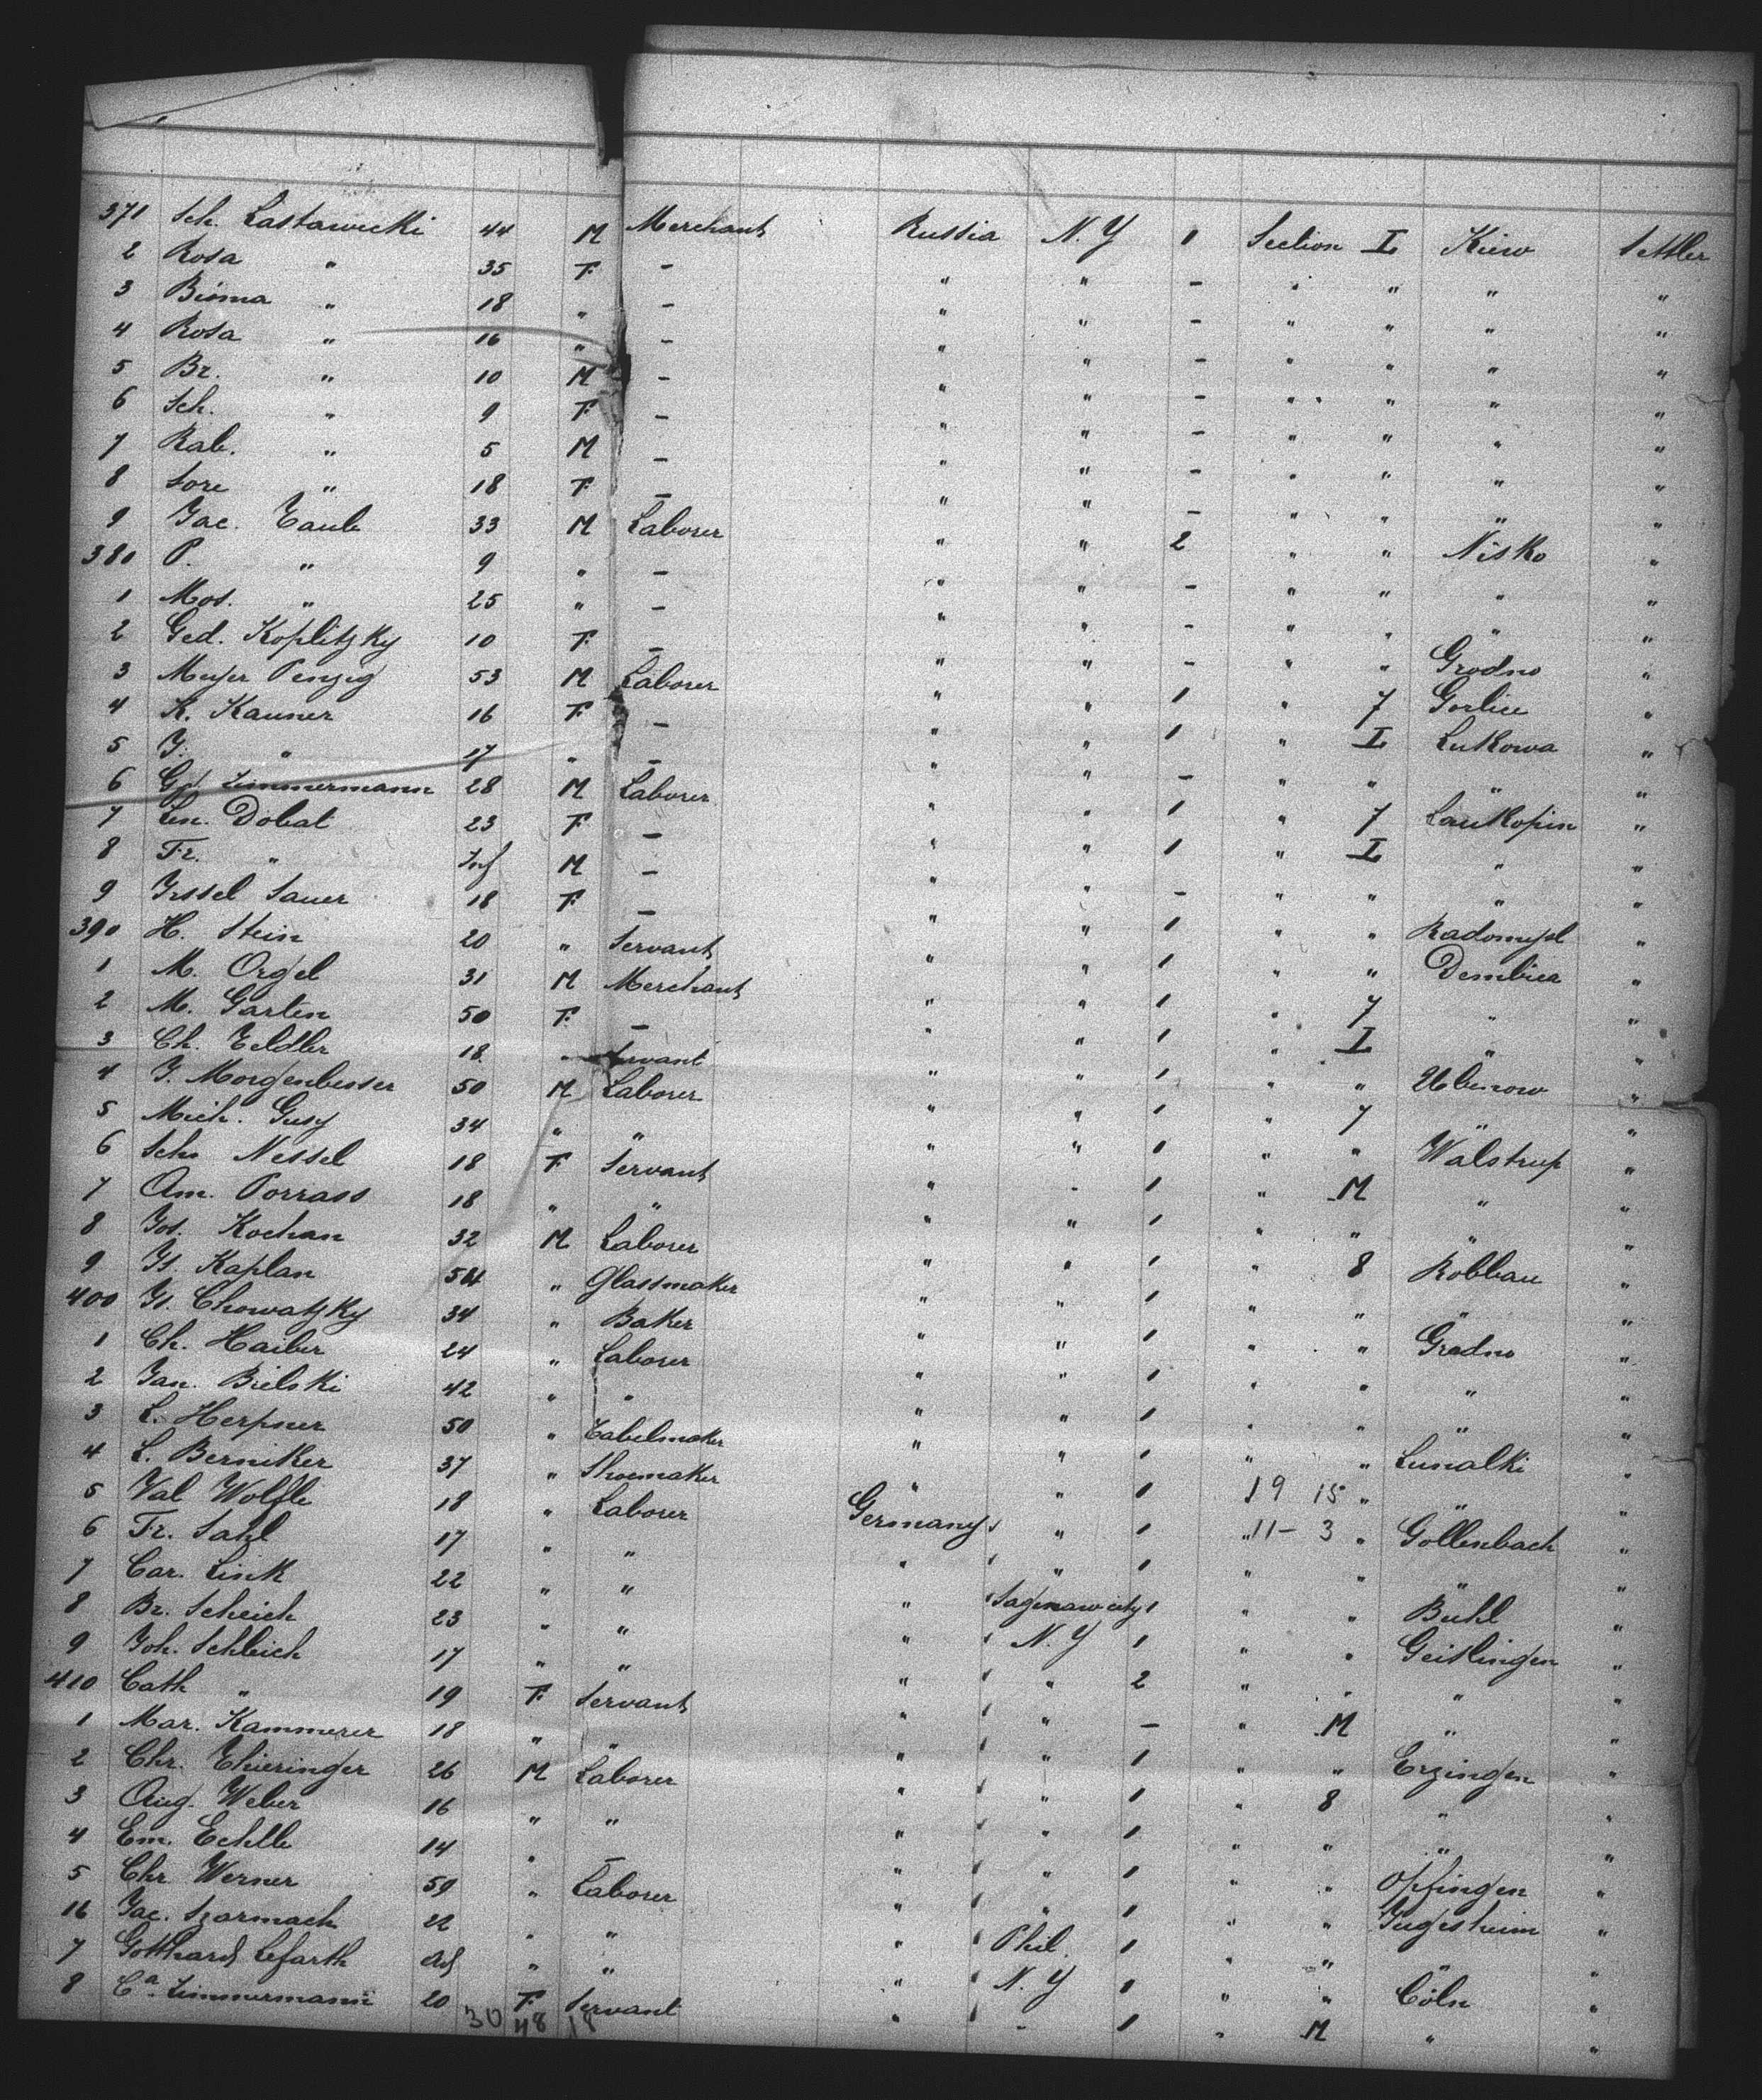 371 Sch. Lastawicki 44 M Merchant Russia N.Y 1 Section I Kiew Settler
2 Rosa " 35 F - " " - " " " "
3 Bisma " 18 " - " " - " " " "
4 Rosa " 16 " - " " - " " " "
5 Br. " 10 M - " " - " " " "
6 Sch. " 9 F - " " - " " " "
7 Rab. " 5 M - " " - " " " "
8 Sore " 18 F - " " - " " " "
9 Jac. Taub 33 M Laborer " " 2 " " Nisko "
380 P. " 9 " - " " - " " " "
1 Mos. " 25 " - " " - " " " "
2 Ged. Koplitzky 10 F - " " - " " Grodno "
3 Meyer Penzig 53 M Laborer " " 1 " 7 Gorlice "
4 K. Kauner 16 F - " " 1 " I Lukowa "
5 J. " 17 " - " " - " " " "
6 Zimmermann 28 M Laborer " " 1 " 7 Laukopin "
7 Lin. Dobat 23 F - " " 1 " I " "
8 Fr. " Inf M - " " - " " " "
9 Jrssel Sauer 18 F - " " 1 " " Radomysl "
390 H. Stein 20 " Servant " " 1 " " Dembica "
1 M. Orgel 31 M Merchant " " 1 " 7 " "
2 M. Garten 50 F - " " 1 " I " "
3 Ch. Feldler 18 " Servant " " 1 " " Ubinow "
4 J. Morgenbesser 50 M Laborer " " 1 " 7 " "
5 Mich. Gusy 34 " " " " 1 " " Walstrup "
6 Sch. Nessel 18 F Servant " " 1 " M " "
7 Am. Porrass 18 " " " " 1 " " " "
8 Jos. Kochan 32 M Laborer " " 1 " 8 Robbau "
9 Js. Kaplan 54 " Glassmaker " " 1 " " " "
400 Js. Chowatzky 34 " Baker " " 1 " " Grodno "
1 Ch. Haiber 24 " Laborer " " 1 " " " "
2 Jan. Bielski 42 " " " " 1 " " " "
3 L. Herpner 50 " Tabelmaker " " 1 " " Sunalki "
4 L. Berniker 37 " Shoemaker " " 1 19 15 " " "
5 Val Wolfle 18 " Laborer Germany " 1 " 11-3 " Göllenbach "
6 Fr. Sahl 17 " " " " 1 " " " "
7 Car. Link 22 " " " Saginaw city 1 " " Buhl "
8 Br. Scheich 23 " " " N.Y 1 " " Geislingen "
9 Joh. Schleich 17 " " " " 2 " " " "
410 Cath " 19 F Servant " " - " M " "
1 Mar. Kammerer 18 " " " " 1 " " Erzingen "
2 Chr. Thieringer 26 M Laborer " " 1 " 8 " "
3 Aug. Weber 16 " " " " 1 " " " "
4 Em. Echlle 14 " - " " 1 " " Opfingen "
5 Chr Werner 59 " Laborer " " 1 " " Jugesheim "
16 Jac. Szarmach 22 " " " Phil. 1 " " " "
7 Gotthard Lefarth " " " N.Y 1 " " Cöln "
8 Ca. Zimmermann 20 F Servant " " 1 " M " "
30 48 18